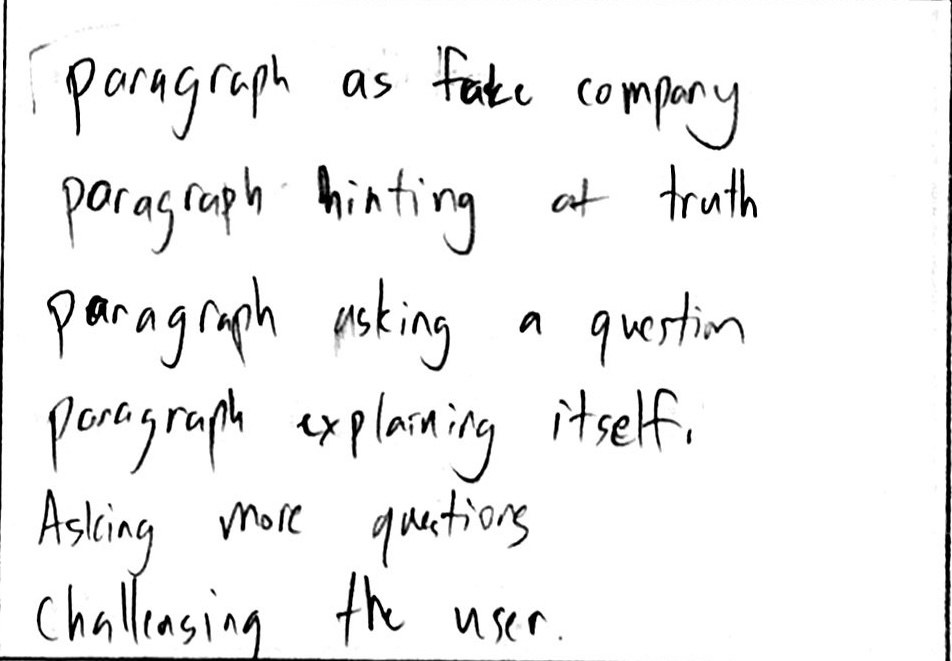 paragraph as fake company
paragraph hinting at truth
paragraph asking a question
paragraph explaining itself.
Asking more questions
Challenging the user.